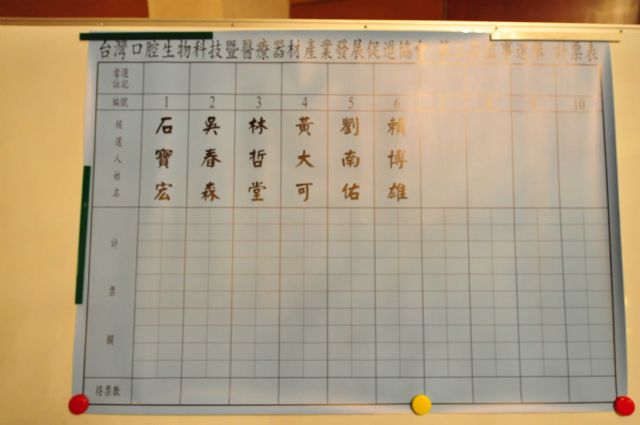 台灣口腔生物科技暨醫療器材產業發展促進協會 監事選舉 計票表
當選註記
編號 1 2 3 4 5 6 10
候選人姓名 石寶宏 吳春森 林哲堂 黃大可 劉南佑 賴博雄
計票欄
得票數